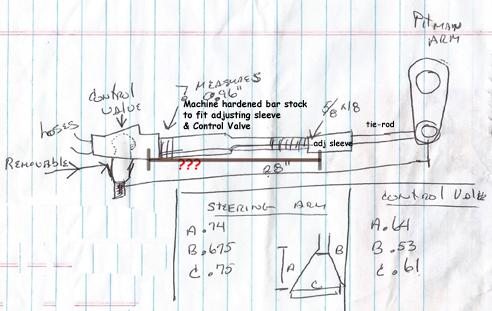 PITMAN
ARM
? MEASURES
0.96"
CONTROL
VALVE
Machine hardened bar stock
to fit adjusting sleeve
& Control Valve
5/8 x18
hoses
tie-rod
adj sleeve
REMOVABLE
???
28"
STEERING ARM
A .74
B .675
C .75
A
B
C
CONTROL VALVE
A .64
B .53
C .61